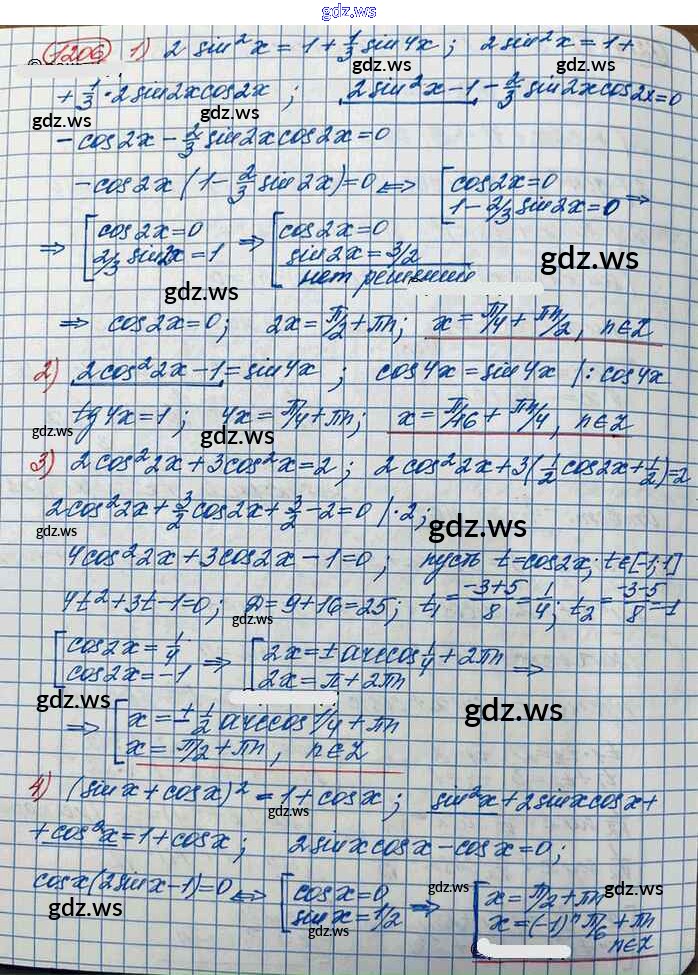 gdz.ws
1206 1) 2 sin²x = 1 + 1/3 sin4x ; 2sin²x = 1 +
+ 1/3 · 2sin2xcos2x ; 2sin²x-1 - 2/3 sin2xcos2x=0
gdz.ws gdz.ws
-cos2x - 2/3 sin2xcos2x=0
gdz.ws
-cos2x (1 - 2/3 sin2x)=0 <=> [cos2x=0
1 - 2/3 sin2x=0 =>
=> [cos2x=0 => [cos2x=0
2/3 sin2x=1 sin2x=3/2
нет решений
gdz.ws
gdz.ws
=> cos2x=0; 2x=π/2+πn; x=π/4+πn/2, n∈Z
2) 2cos²2x-1=sin4x ; cos4x=sin4x |:cos4x
tg4x=1 ; 4x=π/4+πn; x=π/16+πn/4, n∈Z
gdz.ws gdz.ws
3) 2cos²2x+3cos²x=2 ; 2cos²2x+3(1/2 cos2x+1/2)=2
2cos²2x+3/2 cos2x+3/2-2=0 |·2;
gdz.ws gdz.ws
4cos²2x+3cos2x-1=0 ; пусть t=cos2x; t∈[-1;1]
4t²+3t-1=0; D=9+16=25; t₁=(-3+5)/8=1/4; t₂=(-3-5)/8=-1
gdz.ws
[cos2x=1/4 => [2x=±arccos1/4+2πn =>
cos2x=-1 2x=π+2πn
gdz.ws gdz.ws
=> [x=±1/2 arccos1/4+πn
x=π/2+πn, n∈Z
4) (sinx+cosx)²=1+cosx ; sin²x+2sinxcosx+
gdz.ws
+cos²x=1+cosx; 2sinxcosx-cosx=0;
cosx(2sinx-1)=0 <=> [cosx=0 => [x=π/2+πn
sinx=1/2 x=(-1)ⁿπ/6+πn
n∈Z
gdz.ws gdz.ws gdz.ws
gdz.ws gdz.ws